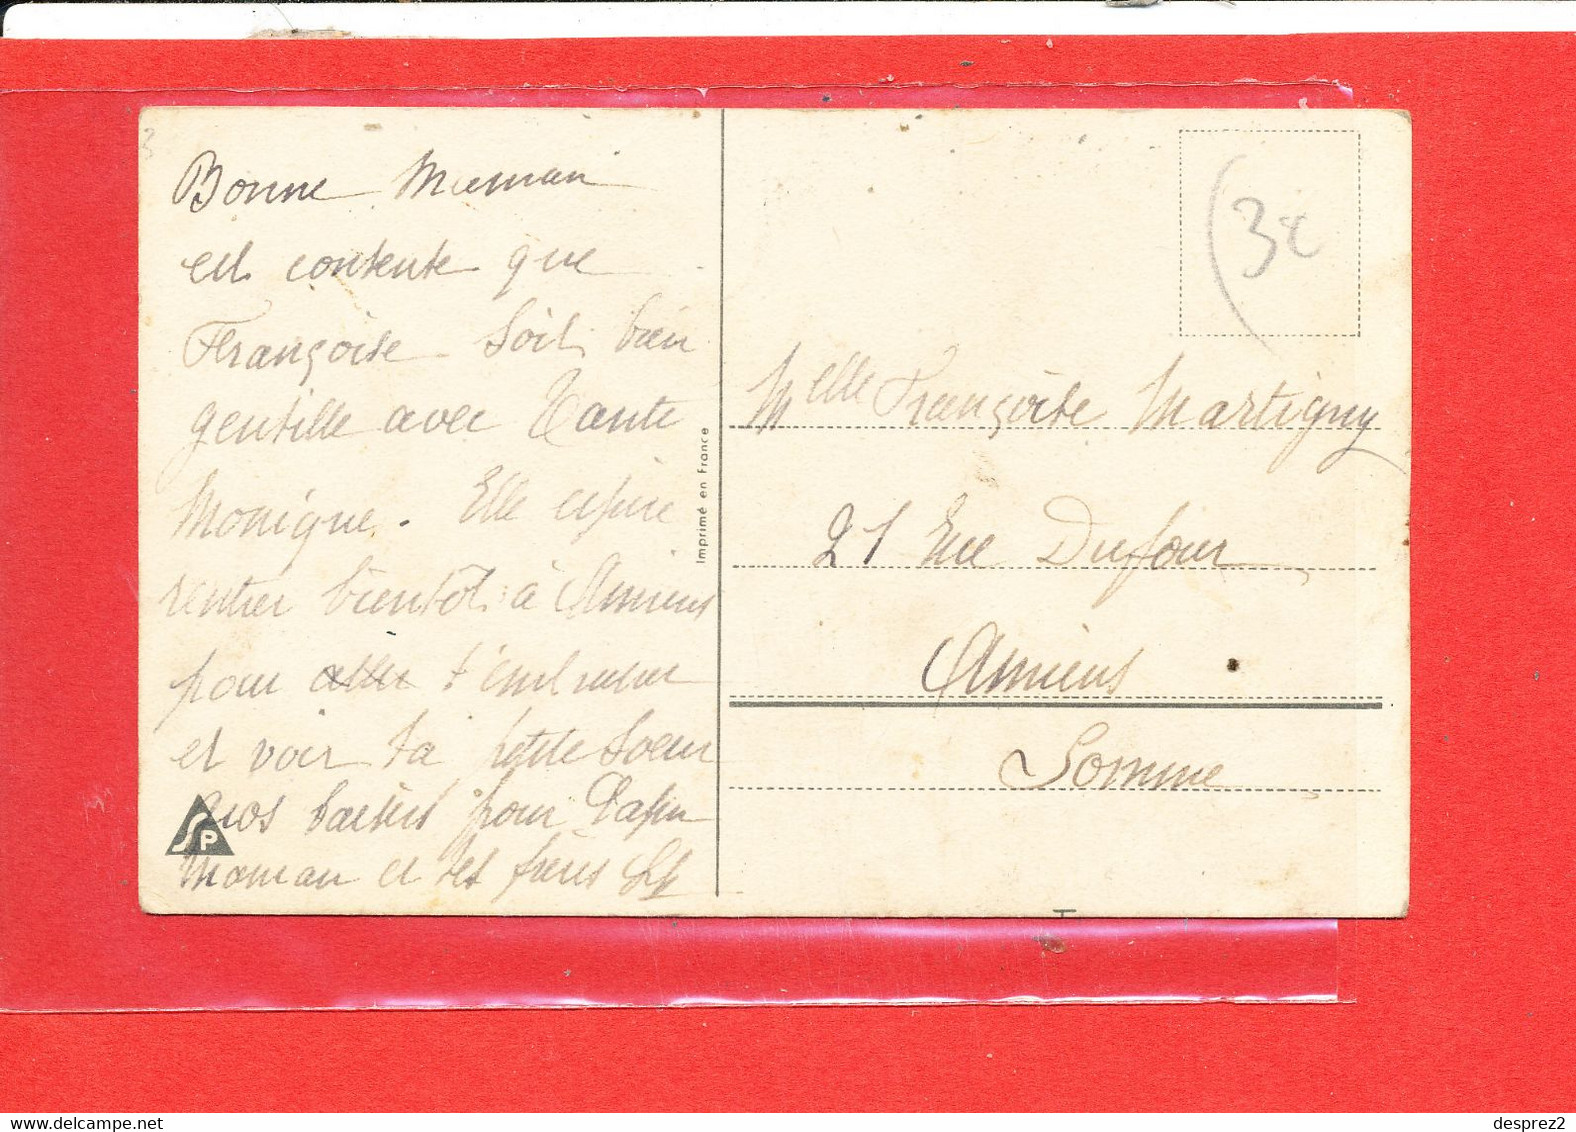 Bonne Maman
est contente que
Françoise soit bien
gentille avec Tante
Monique. Elle espère
rentrer bientôt à Amiens
pour aller t'embrasser
et voir ta petite soeur
gros baisers pour Papa
Maman et tes frères
Imprimé en France
SP
3€
Melle Françoise Martigny
21 Rue Dufour
Amiens
Somme
desprez2